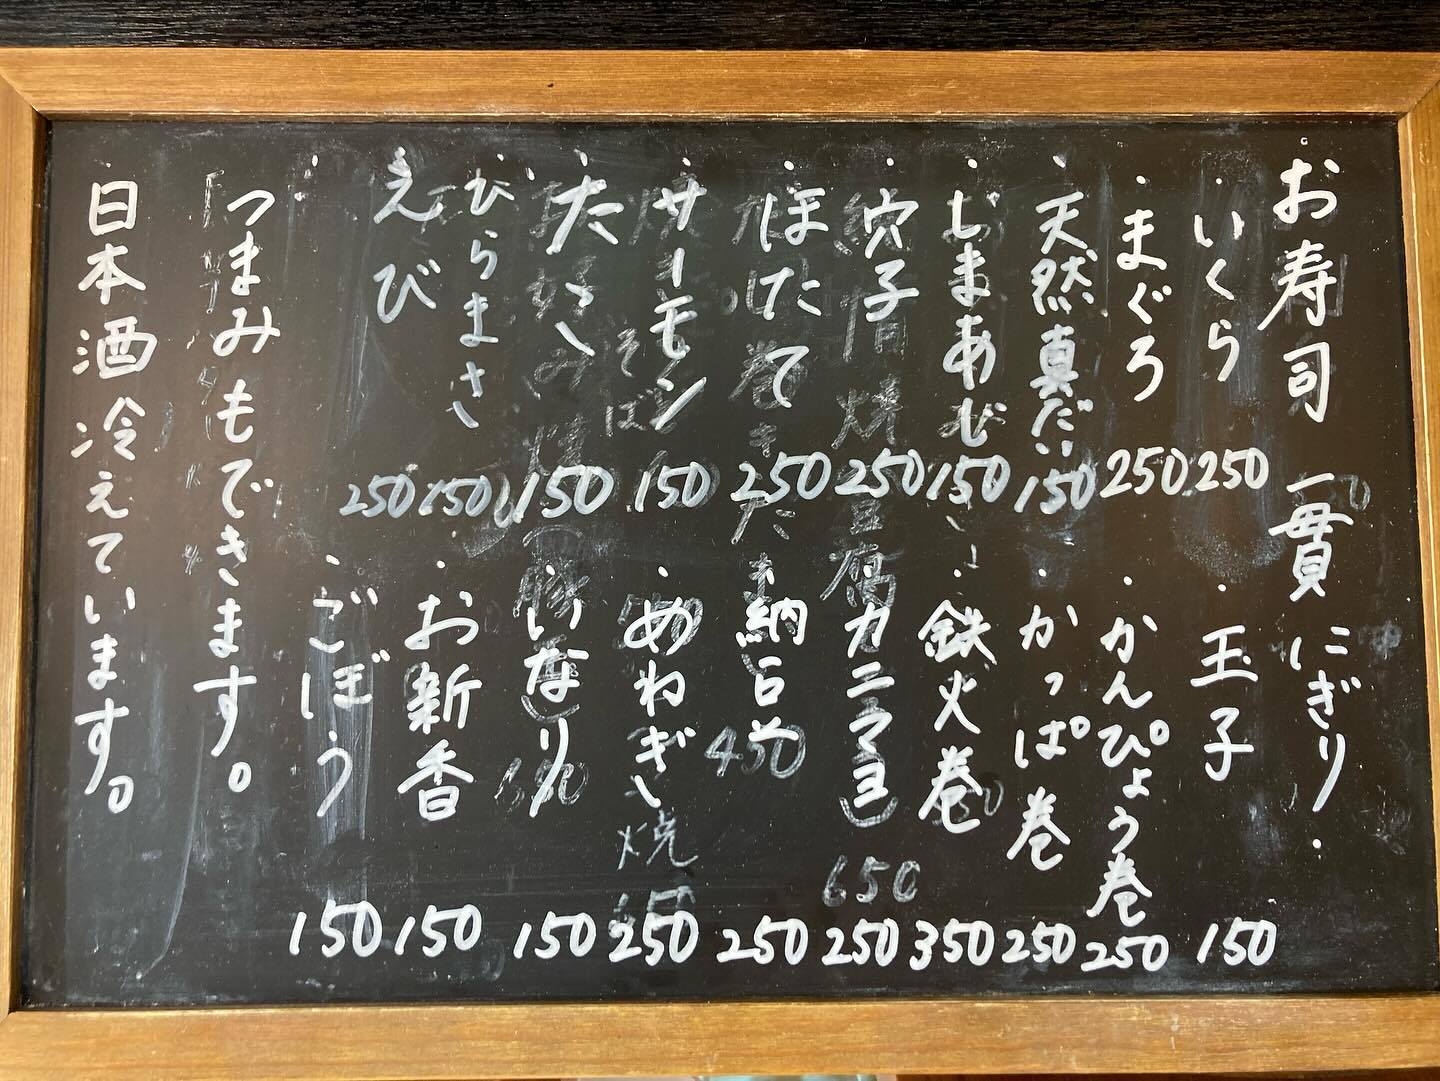 お寿司 一貫 にぎり.
・いくら 250
・まぐろ 250
・天然真だい 150
・しまあじ 150
・穴子 250
・ほたて 250
・サーモン 150
・たこ 150
・ひらまさ 150
・えび 250
・玉子 150
・かんぴょう巻 250
・かっぱ巻 250
・鉄火巻 350
・カニマヨ 250
・納豆 250
・めねぎ 250
・いなり 150
・お新香 150
・ごぼう 150
つまみもできます。
日本酒冷えています。